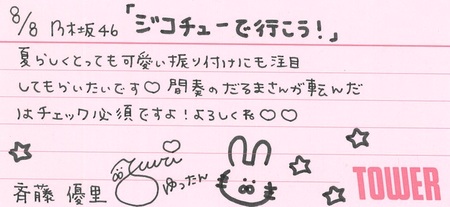 8/8 乃木坂46 「ジコチューで行こう！」
夏らしくとっても可愛い振り付けにも注目
してもらいたいです♡ 間奏のだるまさんが転んだ
はチェック必須ですよ！よろしくね♡♡
斉藤 優里 Yuuri ゆったん
TOWER